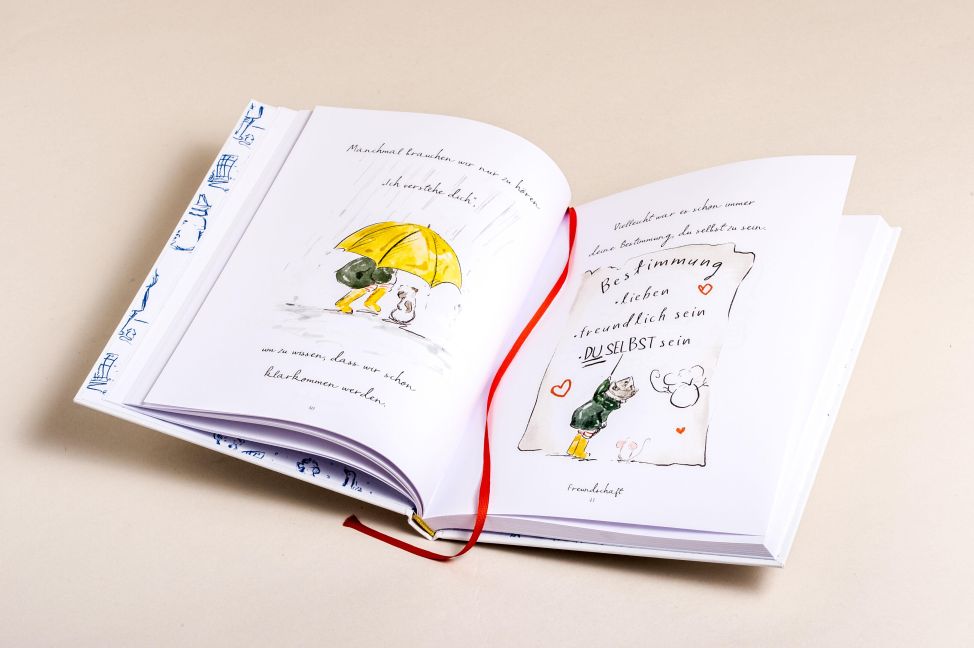 Manchmal brauchen wir nur zu hören
„Ich verstehe dich“,
um zu wissen, dass wir schon
klarkommen werden.
Vielleicht war es schon immer
deine Bestimmung, du selbst zu sein.
Bestimmung
•lieben
•freundlich sein
•DU SELBST sein
Freundschaft